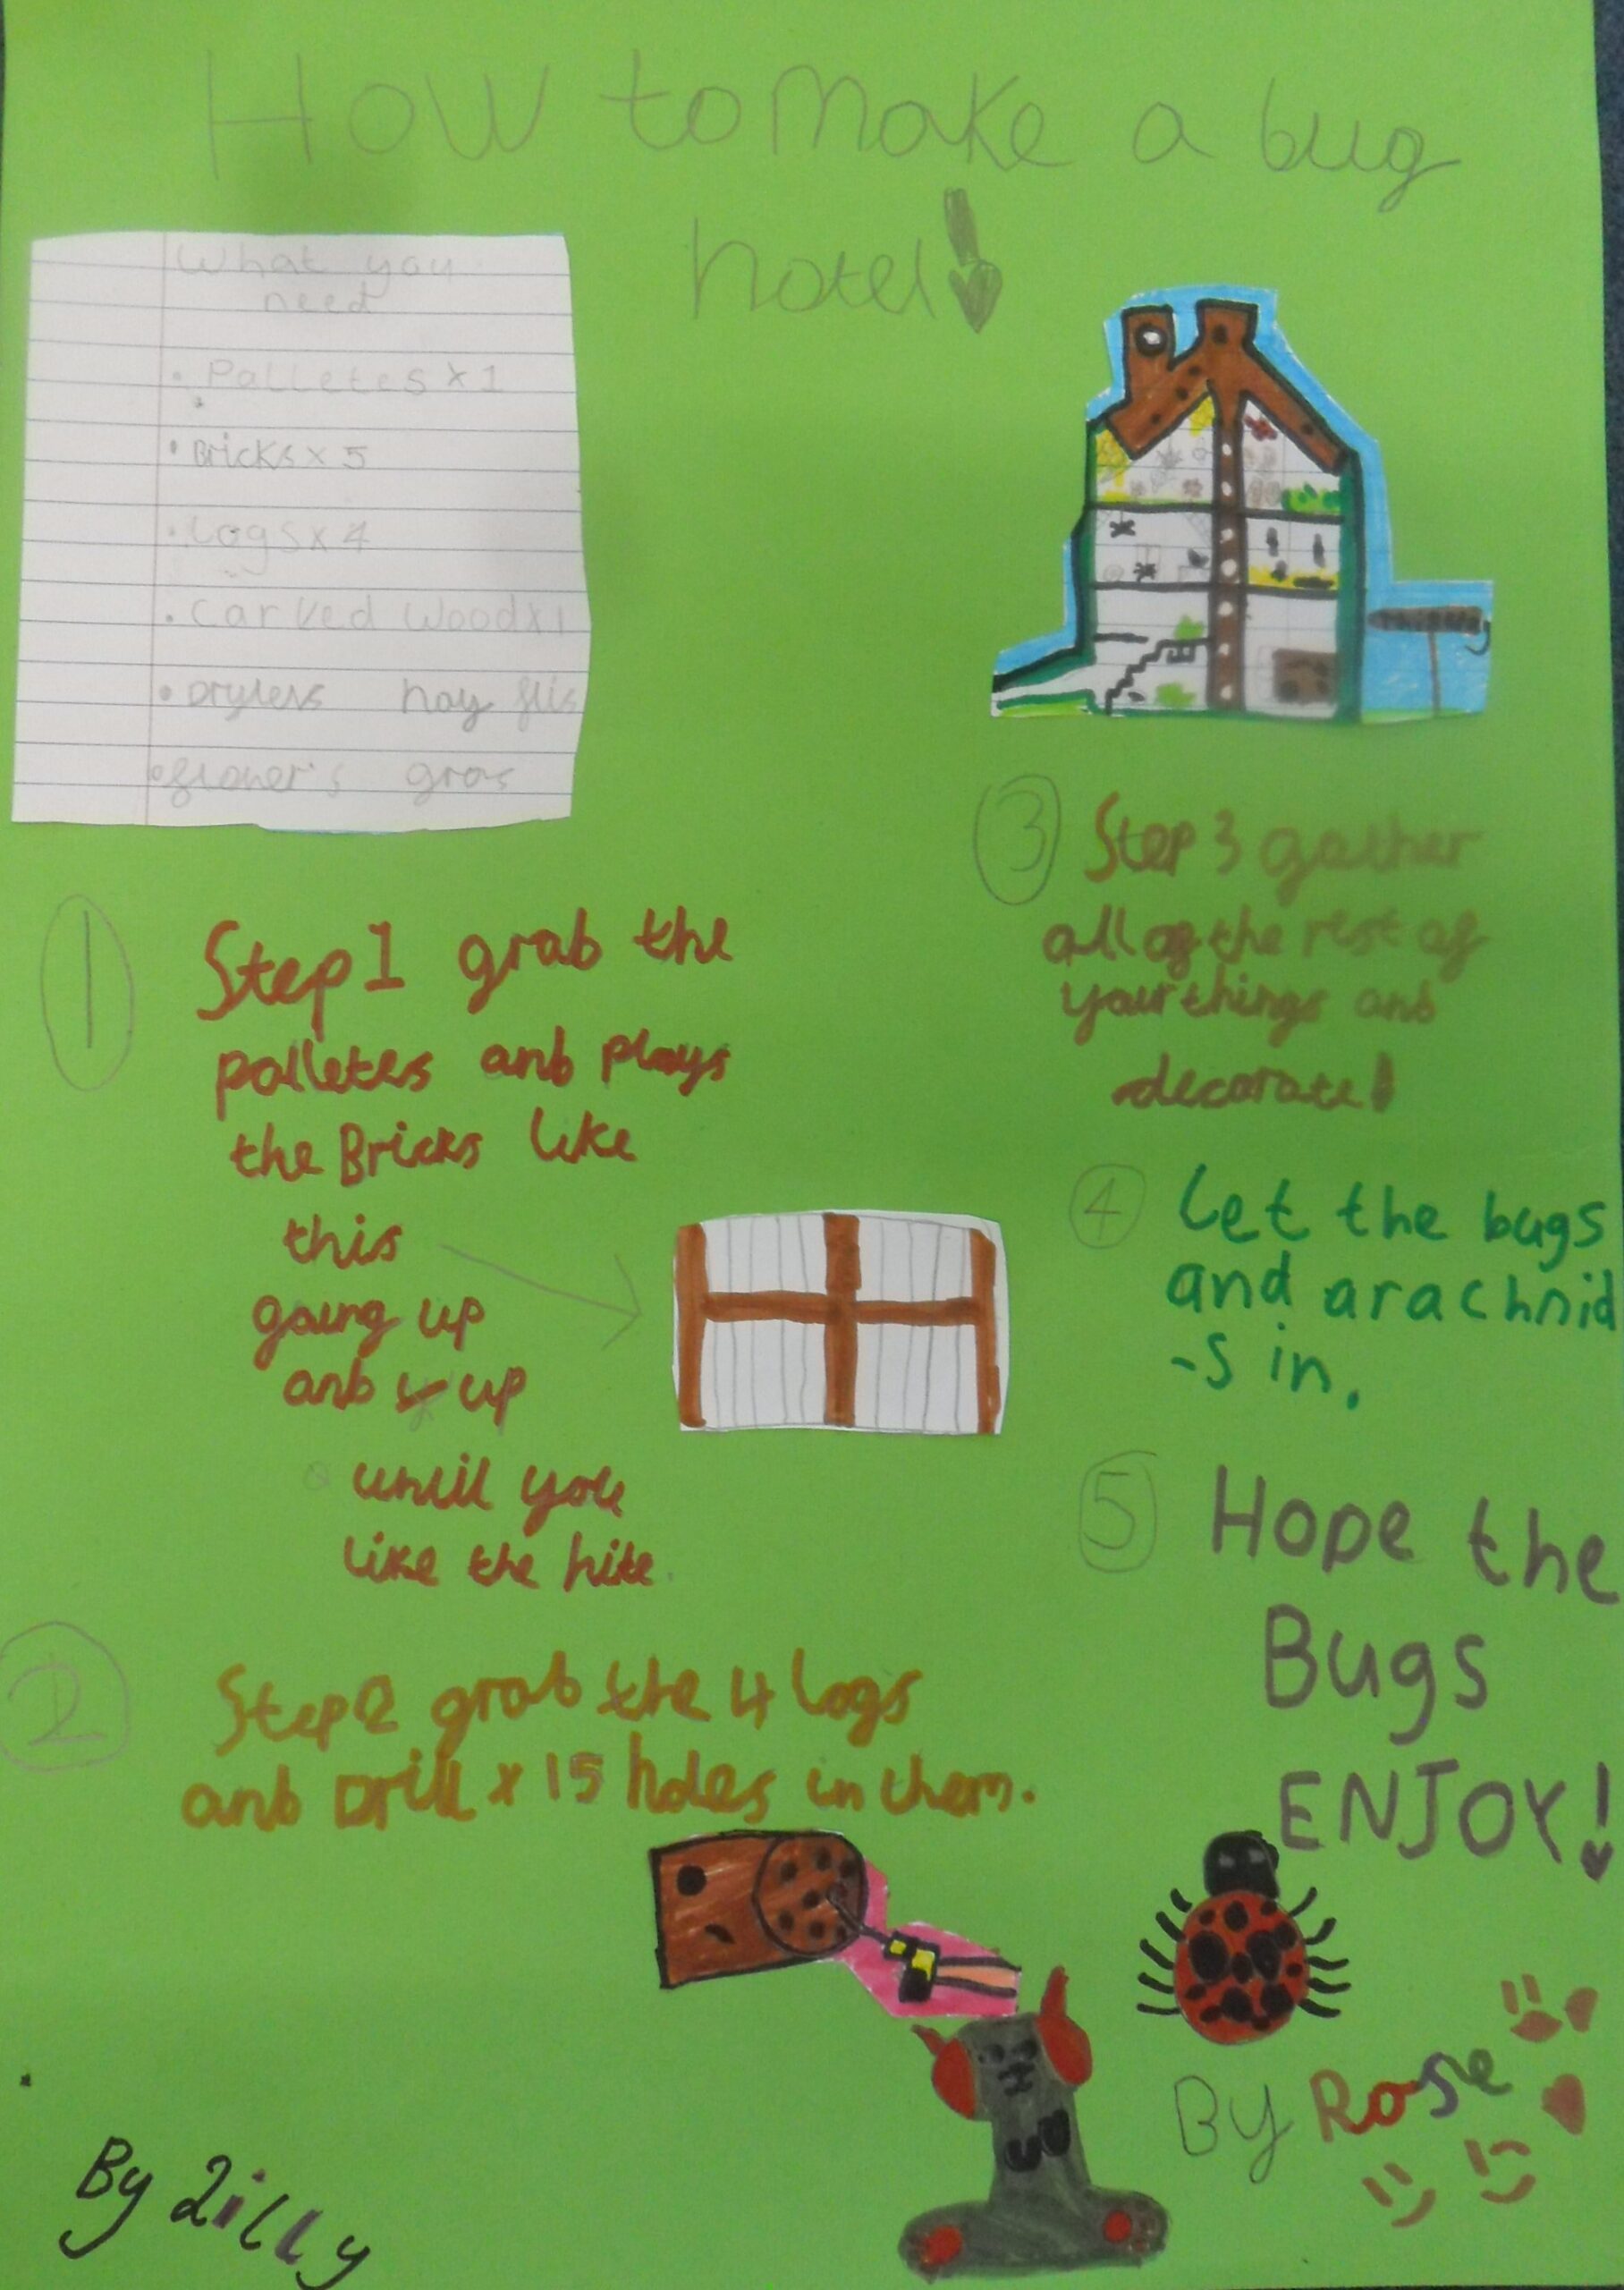 How to make a bug
hotel!
What you
need
• Palletes x 1
• Bricks x 5
• Logs x 4
• Carved Wood x 1
• hay
• flower's gras
1
Step 1 grab the
palletes anb plays
the Bricks like
this
going up
anb up
until you
like the hite.
2
Step 2 grab the 4 logs
anb Drill x 15 holes in them.
3
Step 3 gather
all of the rest of
your things anb
decorate!
4
Let the bugs
and arachnid
-s in.
5
Hope the
Bugs
ENJOY!
By Rose
By Lilly